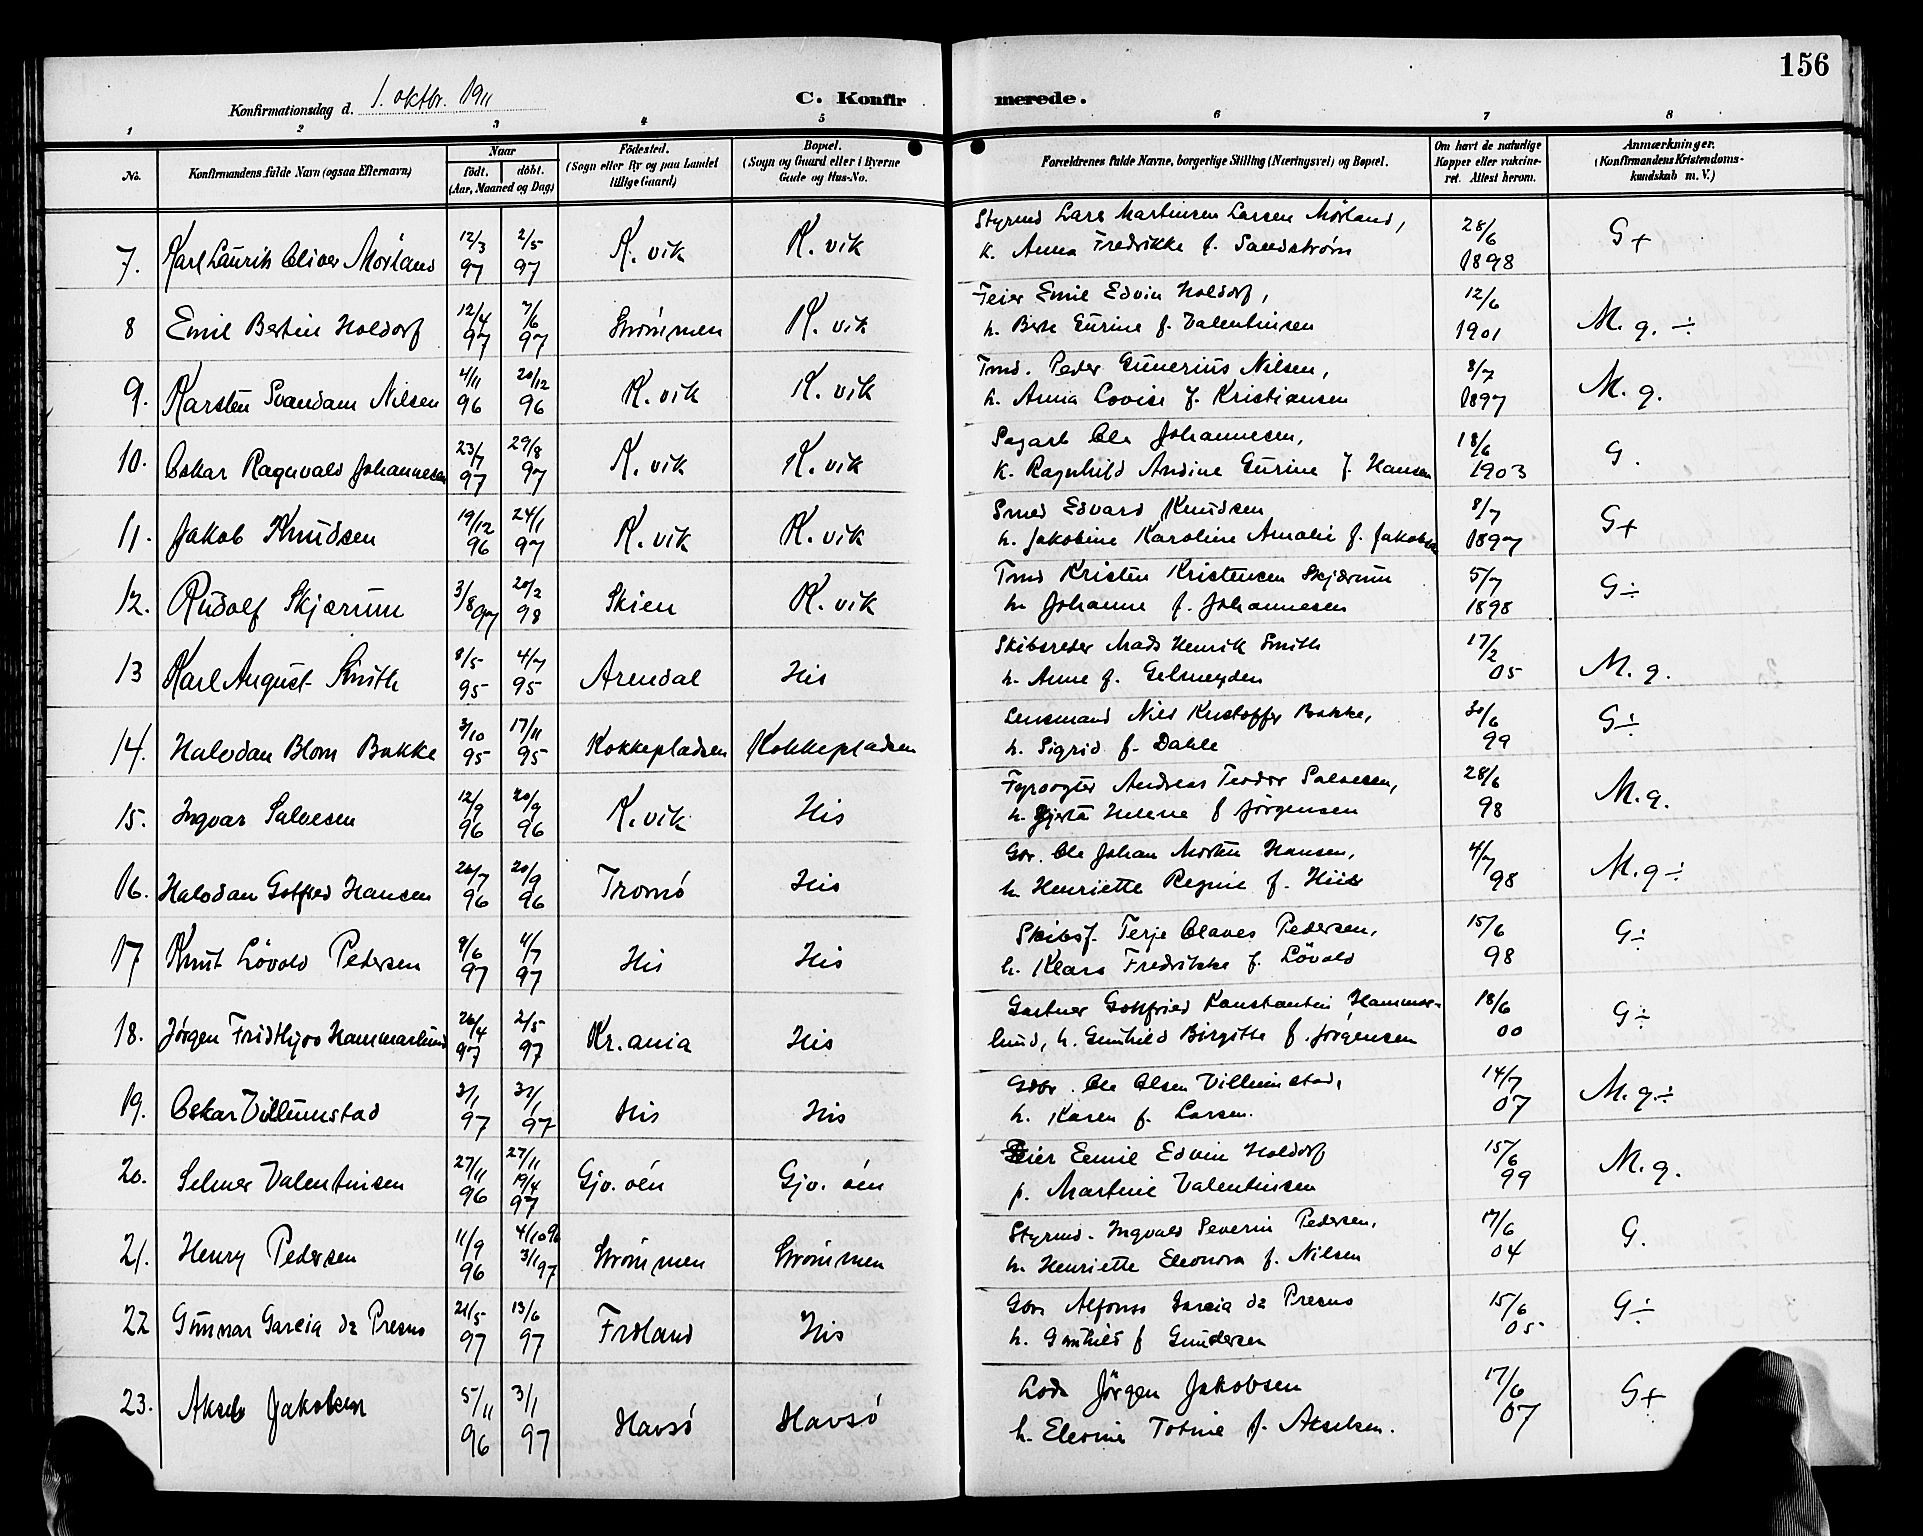 156
Konfirmationsdag d. 1. oktbr. 1911
C. Konfirmerede.
1 2 3 4 5 6 7 8
No. Konfirmandens fulde Navn (ogsaa Efternavn) Naar födt. döbt. (Aar, Maaned og Dag) Födested. (Sogn eller By og paa Landet tillige Gaard) Bopæl. (Sogn og Gaard eller i Byerne Gade og Hus-No. Forældrenes fulde Navne, borgerlige Stilling (Næringsvei) og Bopæl. Om havt de naturlige Kopper eller vaksineret. Attest herom. Anmærkninger. (Konfirmandens Kristendomskundskab m. V.)
7. Karl Laurits Oliver Mörland 12/3 97 2/5 97 K.vik K.vik Styrmd Lars Martinsen Larsen Mörland, 28/6 1898 G+
k. Anna Fredrikke f. Sandström
8 Emil Bertin Holdorf 12/4 97 7/6 97 Strömmen K.vik Feier Emil Edvin Holdorf, 12/6 1901 M. g. ÷
h. Berte Gurine f. Valentinsen
9. Karsten Svendam Nilsen 4/11 96 20/12 96 K.vik K.vik Tmd. Peder Gunerius Nilsen, 8/7 1897 M. g.
h. Anna Lovise f. Kristiansen
10. Oskar Ragnvald Johannesen 23/7 97 29/8 97 K.vik K.vik Sagarb Ole Johannesen, 18/6 1903 G.
k. Ragnhild Andine Gurine f. Hansen
11. Jakob Knudsen 19/12 96 24/1 97 K.vik K.vik Smed Edvard Knudsen 8/7 1897 G+
h. Jakobine Karoline Amalie f. Jakobsen
12. Rudolf Skjærum 3/8 97 20/2 98 Skien K.vik Tmd Kristen Kristensen Skjærum 5/7 1898 G÷
h. Johanne f. Johannesen
13 Karl August Smith 8/5 95 4/7 95 Arendal His Skibsreder Mads Henrik Smith 17/2 05 M. g.
h. Anne f. Gelmeyden
14. Halvdan Blom Bakke 3/10 95 17/11 95 Kokkepladsen Kokkepladsen Lensmand Nils Kristoffer Bakke, 30/6 99 G÷
h. Sigrid f. Dahle
15. Ingvar Salvesen 12/9 96 20/9 96 K.vik His Fyrvogter Andreas Teodor Salvesen, 28/6 98 M.g.
h. Gjerta Helene f Jörgensen
16. Halvdan Gotfred Hansen 26/7 96 20/9 96 Tromö His Gbr. Ole Johan Morten Hansen, 4/7 98 M.g÷
h. Henriette Regine f. Hiis
17 Knut Lövold Pedersen 9/6 97 4/7 97 His His Skibsf. Terje Olaves Pedersen, 15/6 98 G÷
h. Klara Fredrikke f. Lövold
18. Jörgen Fridthjov Hammarlund 26/4 97 2/5 97 Kr.ania His Gartner Gottfried Konstantin Hammar- 18/6 00 G÷
lund, h. Gunhild Birgitte f. Jörgensen
19. Oskar Villumstad 3/1 97 31/1 97 His His Gdbr. Ole Olsen Villumstad, 14/7 07 M.g÷
h. Karen f. Larsen.
20. Selmer Valentinsen 27/11 96 27/11 19/4 97 Gjv.öen Gjv. öen Feier Emil Edvin Holdorf 15/6 99 M.g.
p. Martine Valentinsen
21. Henry Pedersen 11/9 96 4/10 96 3/1 97 Strömmen Strömmen Styrmd. Ingvald Severin Pedersen, 17/6 04 G.
h. Henriette Eleonora f. Nilsen
22 Gunnar Garcia de Presno 21/5 97 13/6 97 Froland His Alfonso Garcia de Presno 15/6 05 G÷
h. Gunhild f Gundersen
23. Aksel Jakobsen 5/11 96 3/1 97 Havsö Havsö Lods Jörgen Jakobsen 17/6 07 G+
h. Elevine Totine f. Akselsen.